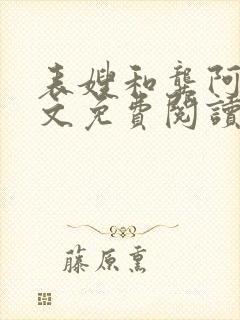 表嫂和龔阿
文免費閱讀
藤原熏